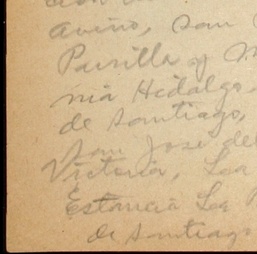 Avino, San
Parrilla y M
nia Hidalgo,
de Santiago,
San Jose del
Victoria, La
Estancia La
de Santiago